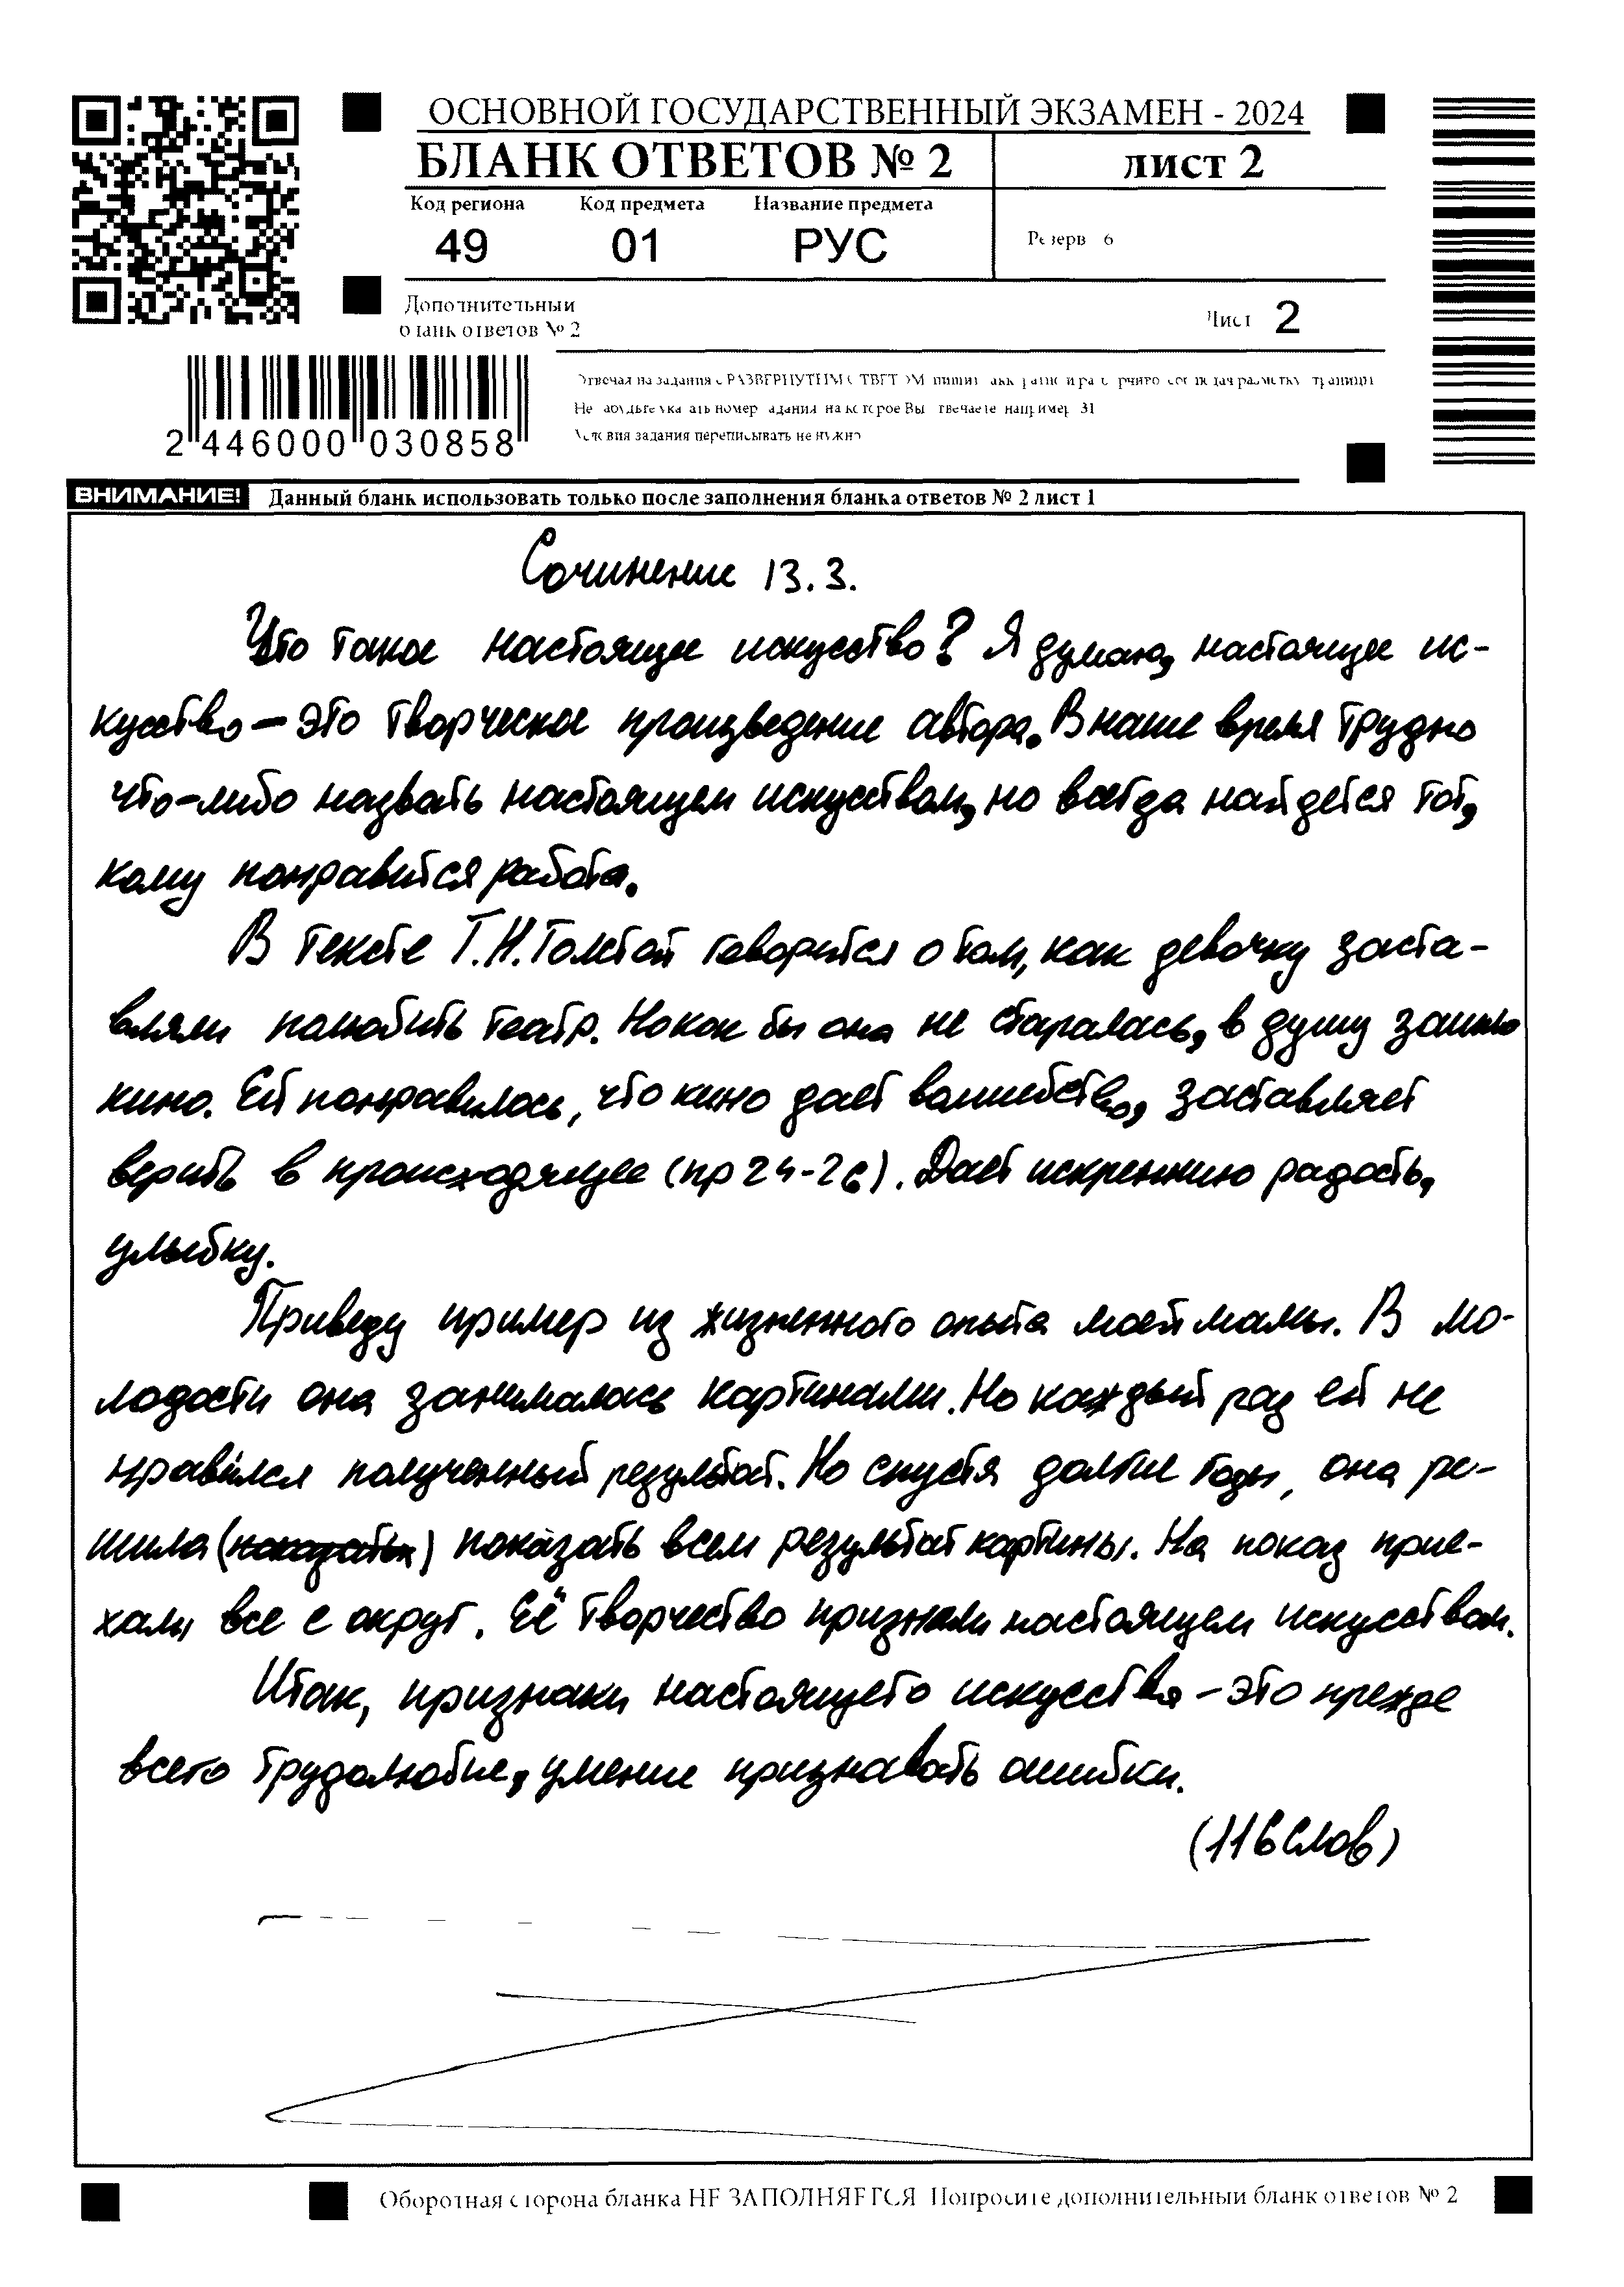 ОСНОВНОЙ ГОСУДАРСТВЕННЫЙ ЭКЗАМЕН - 2024
БЛАНК ОТВЕТОВ № 2 лист 2
Код региона Код предмета Название предмета
49 01 РУС
Резерв 6
Дополнительный
бланк ответов № 2
Лист 2
Не забудьте указать номер задания на которое Вы отвечаете например 31
Условия задания переписывать не нужно
2 446000 030858
ВНИМАНИЕ! Данный бланк использовать только после заполнения бланка ответов № 2 лист 1
Сочинение 13.3.
Что такое настоящее искусство? Я думаю, настоящее ис-
кусство – это творческое произведение автора. В наше время трудно
что-либо назвать настоящем искусством, но всегда найдется тот,
кому понравится работа.
В тексте Т.Н.Толстой говорится о том, как девочку заста-
вляли полюбить театр. Но как бы она не старалась, в душу зашло
кино. Ей понравилось, что кино дает волшебство, заставляет
верить в происходящее (пр 24-26). Дает искреннию радость,
улыбку.
Приведу пример из жизненного опыта моей мамы. В мо-
лодости она занималась картинами. Но каждый раз ей не
нравился полученный результат. Но спустя долгие годы, она ре-
шила (показать) показать всем результат картины. На показ прие-
хали все с округ. Её творчество признали настоящем искусством.
Итак, признаки настоящего искусства – это прежде
всего трудолюбие, умение признавать ошибки.
(116 слов)
Оборотная сторона бланка НЕ ЗАПОЛНЯЕТСЯ Попросите дополнительный бланк ответов № 2